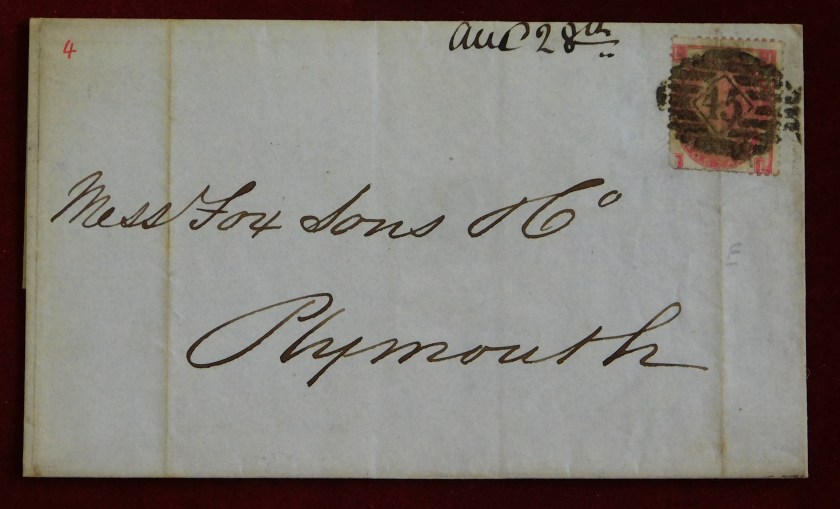 4
Aug 28th
45
Mess Fox Sons & Co
Plymouth